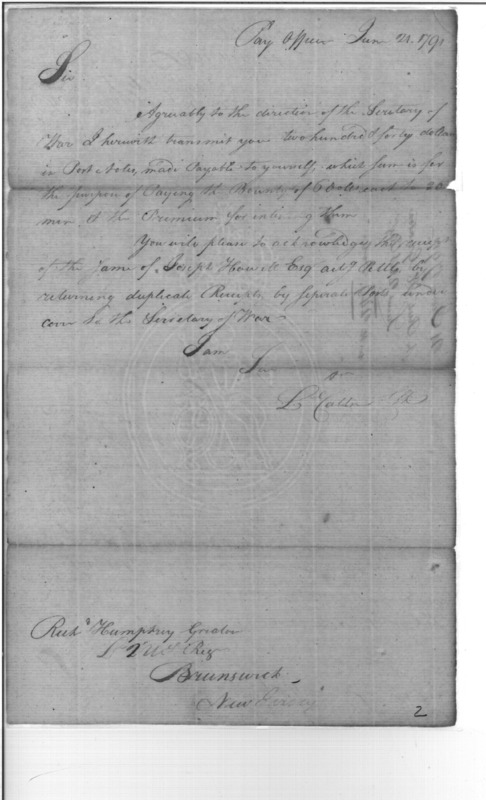 Pay Office Jun 21. 1791
Sir
Agreeably to the direction of the Secretary of
War I herewith transmit you two hundred forty dollars
in Post Notes, made Payable to yourself, which sum is for
the purpose of Paying the Bounty of 6 Dolls each to 20
men & the Premium for inlisting them
You will please to acknowledge the receipt
of the same of Joseph Howell Esq act.g P.M.G by
returning duplicate Receipts by separate Posts, under
cover to the Secretary of War
I am
Sir
Humphrey
Brunswick
New Jersey
2